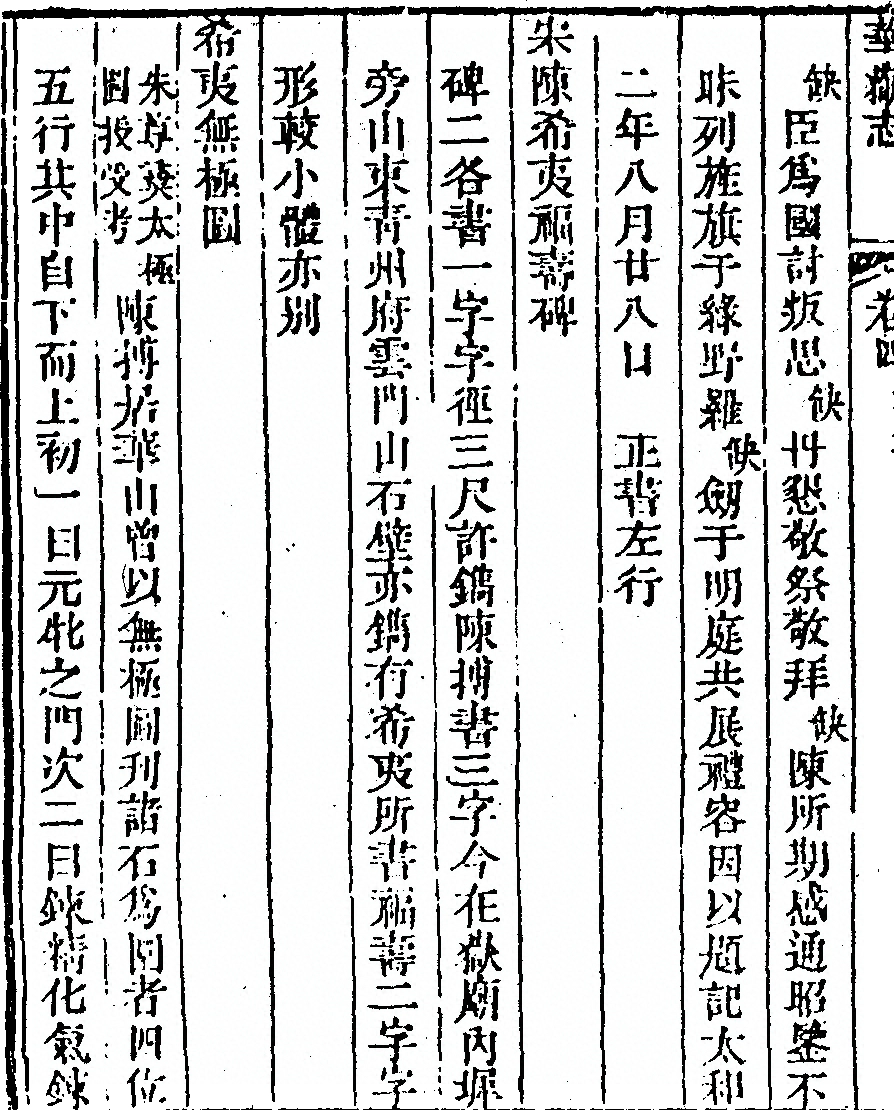 華嶽志 卷四
缺臣爲國討叛思缺卝懇敬祭敬拜缺陳所期感通昭鑒不
昧列旌旗于綠野羅缺劔于明庭共展禮容因以題記太和
二年八月廿八日 正書左行
宋陳希夷福壽碑
碑二各書一字字徑三尺許鐫陳摶書三字今在嶽廟內墀
旁山東青州府雲門山石壁亦鐫有希夷所書福壽二字字
形較小體亦别
希夷無極圖
朱尊彜太極
圖授受考
陳摶居華山曾以無極圖刊諸石爲圜者四位
五行其中自下而上初一曰元牝之門次二曰鍊精化氣鍊